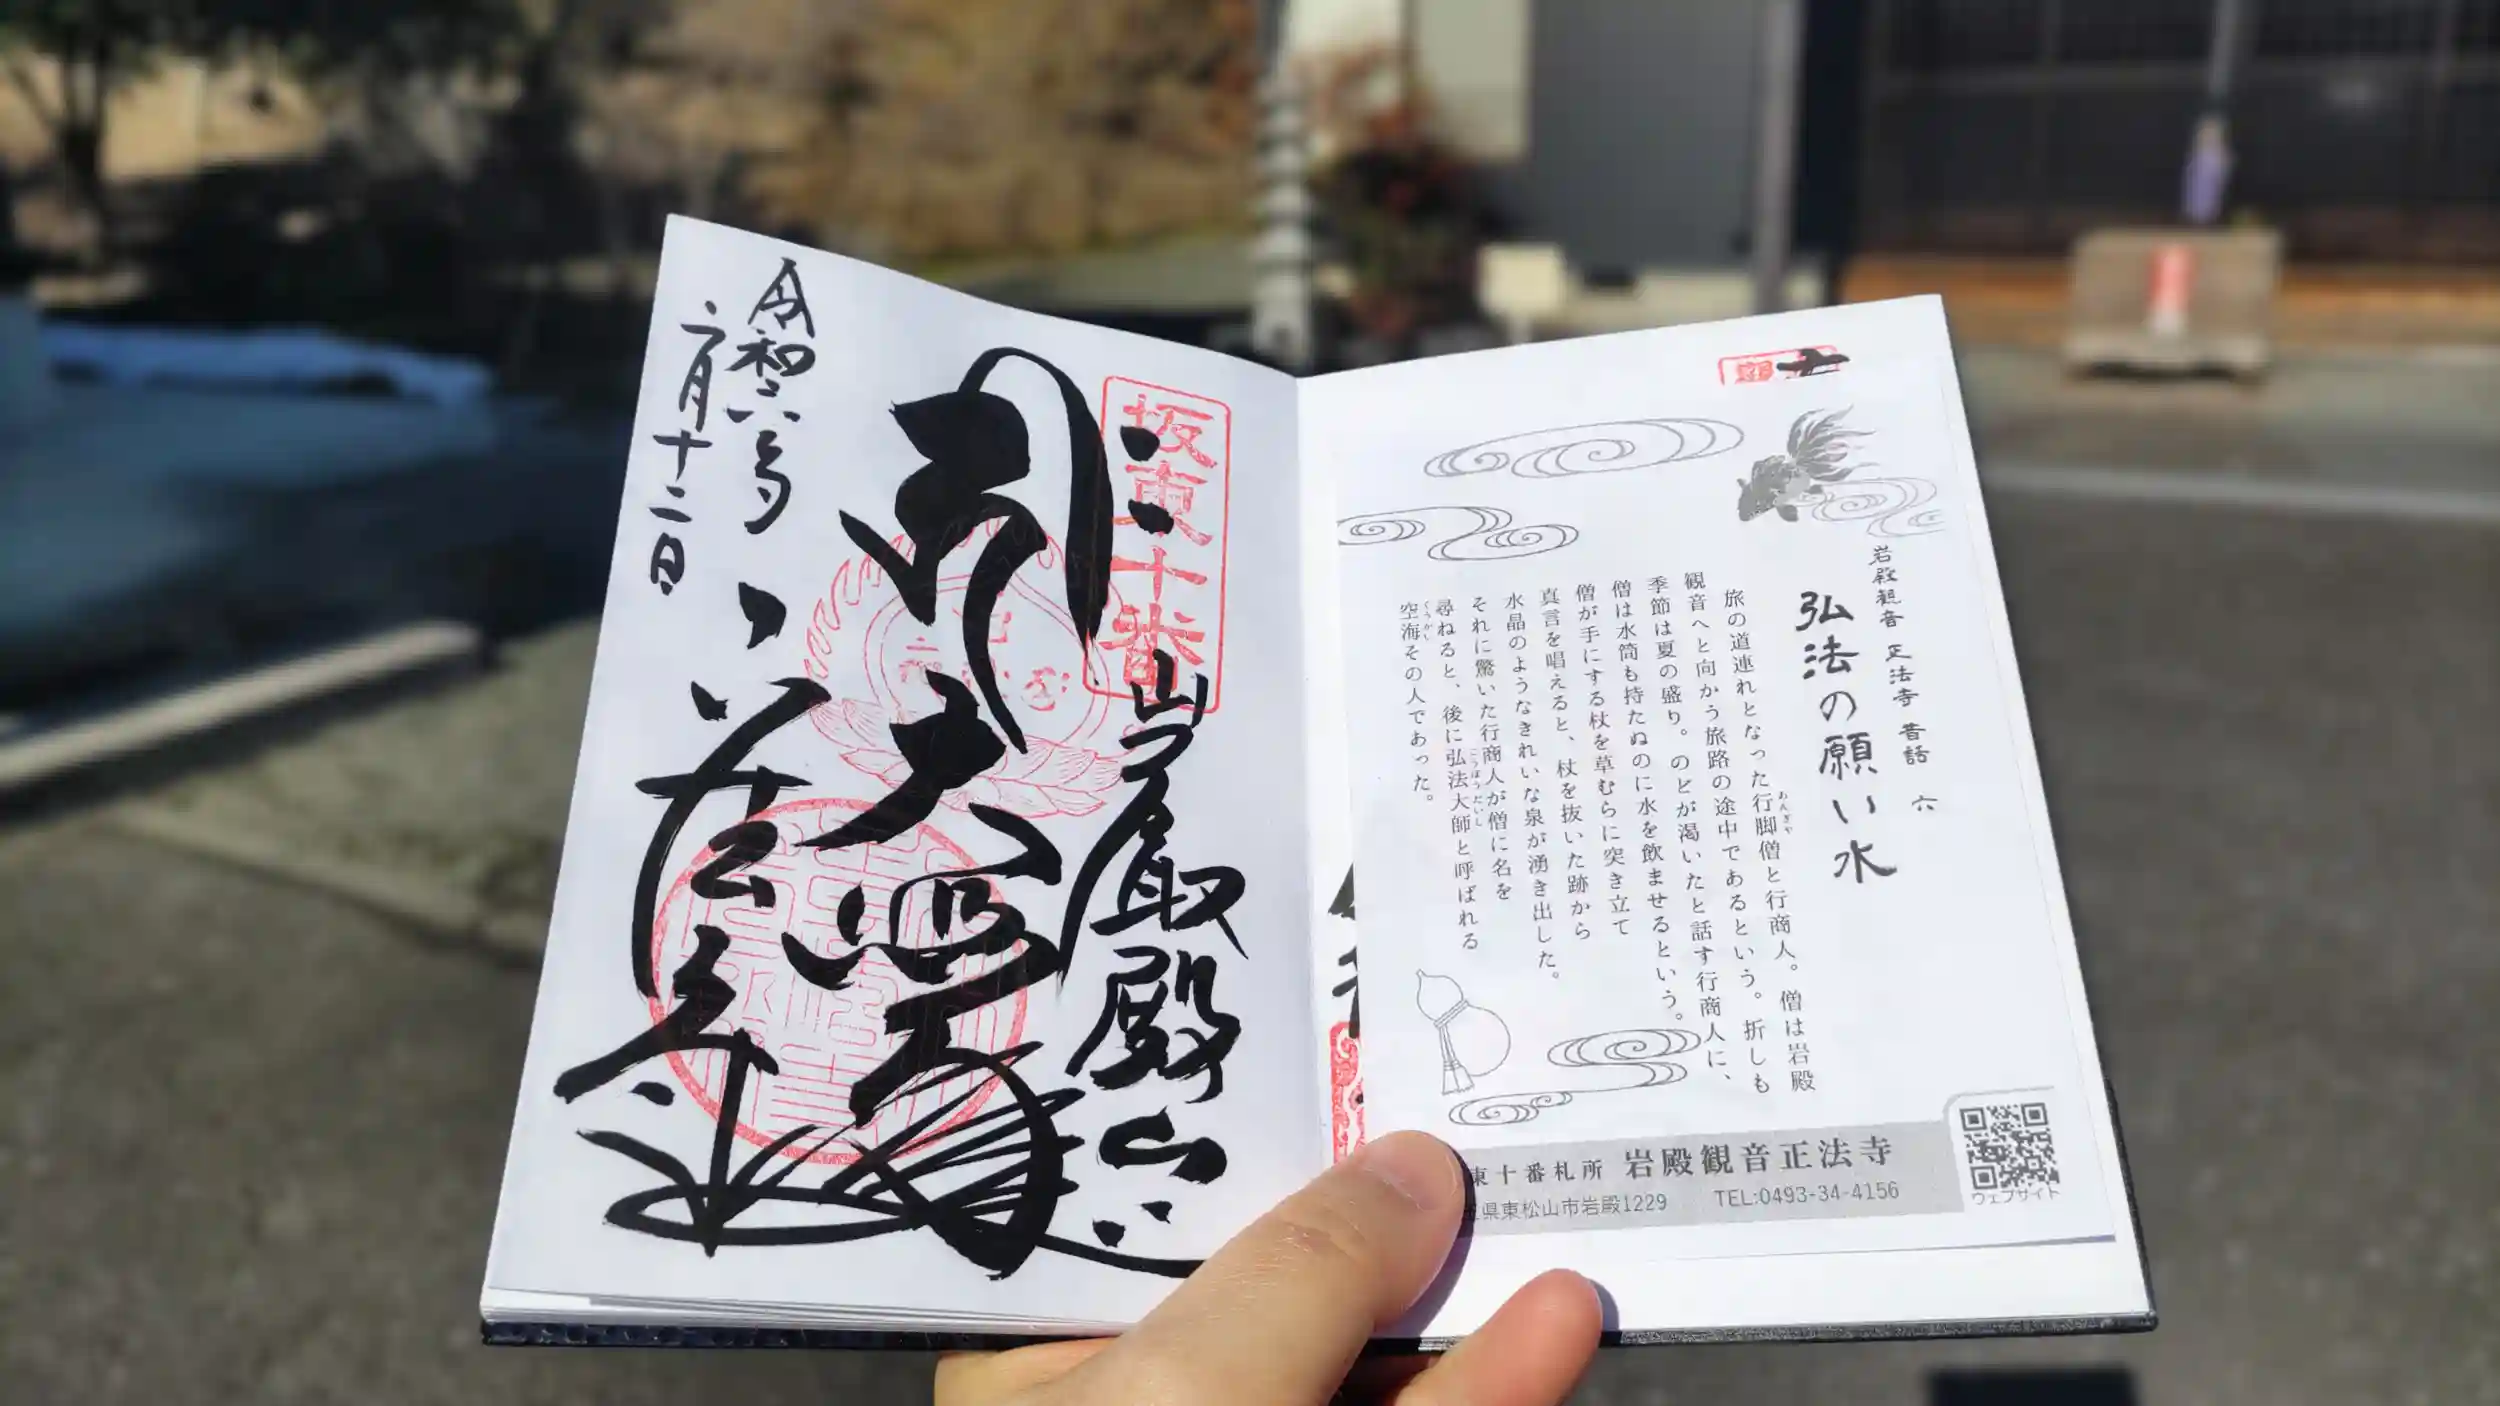 岩殿観音 正法寺 昔話 六
弘法の願い水
旅の道連れとなった行脚僧と行商人。僧は岩殿
あんぎゃ
観音へと向かう旅路の途中であるという。折しも
季節は夏の盛り。のどが渇いたと話す行商人に、
僧は水筒も持たぬのに水を飲ませるという。
僧が手にする杖を草むらに突き立て
真言を唱えると、杖を抜いた跡から
水晶のようなきれいな泉が湧き出した。
それに驚いた行商人が僧に名を
尋ねると、後に弘法大師と呼ばれる
こうぼうだいし
空海その人であった。
くうかい
東十番札所 岩殿観音正法寺
県東松山市岩殿1229 TEL:0493-34-4156
ウェブサイト
坂東十番
巌殿山
大悲殿
正法寺
令和六年
二月十二日